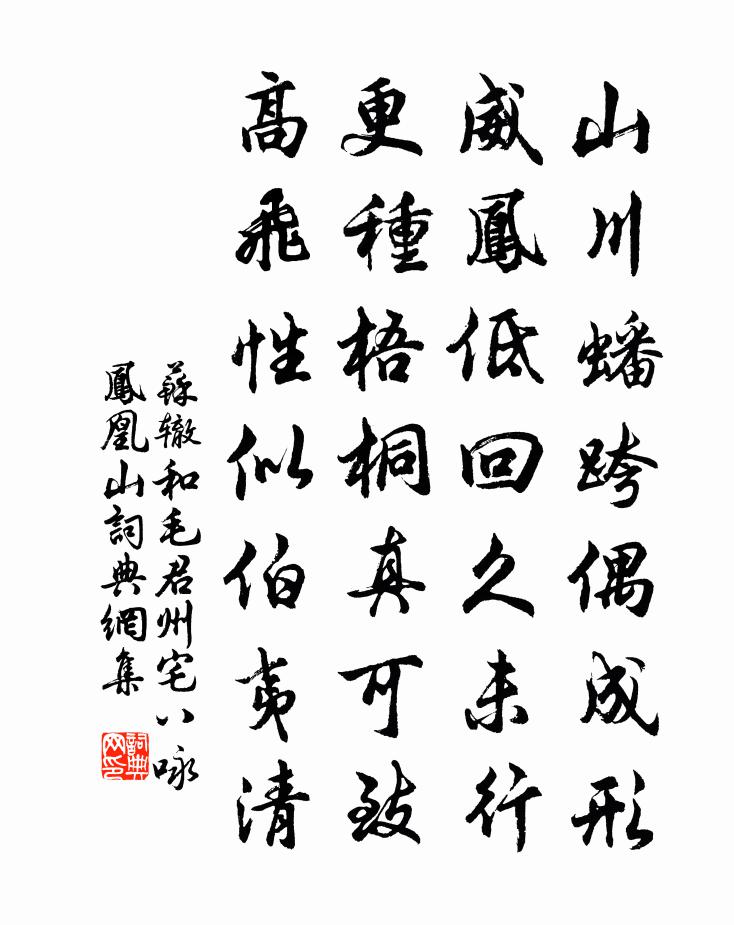 山川蟠跨偶成形
威鳳低回久未行
更種梧桐真可致
高飛性似伯夷清
蘇轍和毛君州宅八咏
鳳凰山詞典網集
詞典
网印